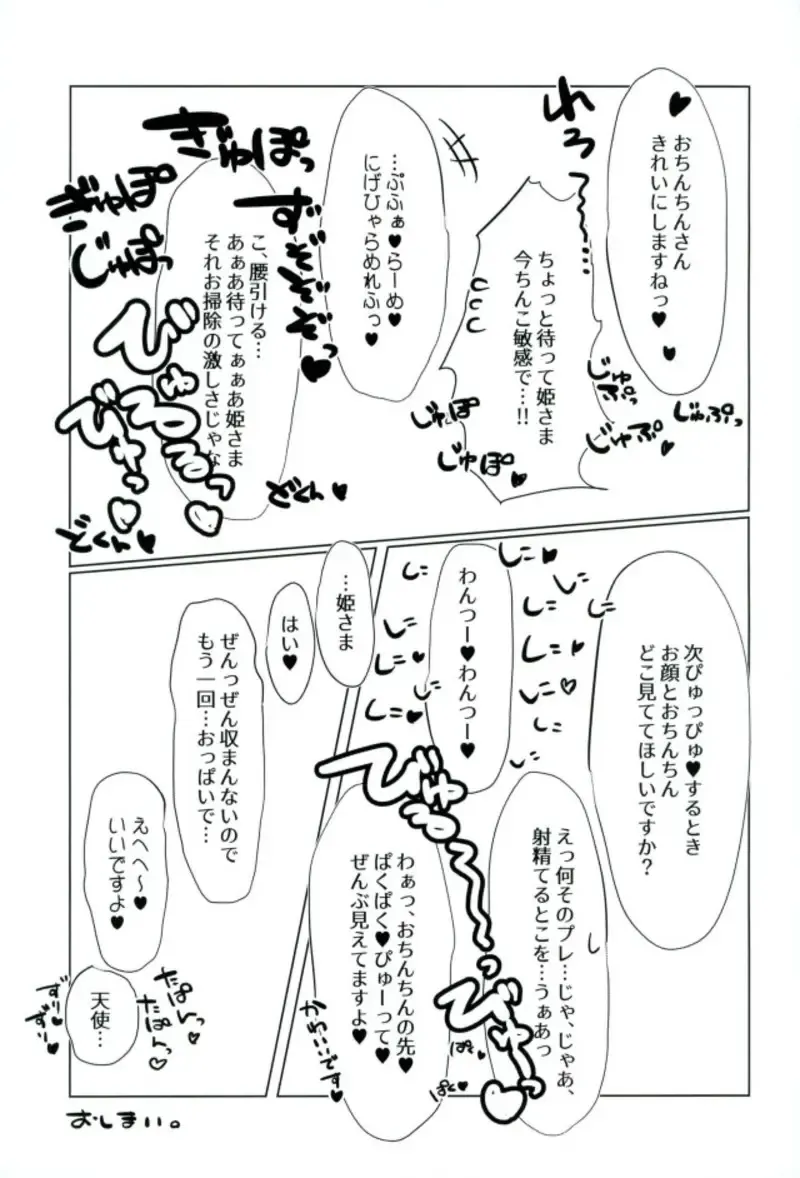 ♥おちんちんさん
きれいにしますねっ♥
♥
れろ
ちょっと待って姫さま
今ちんこ敏感で…!!
じゅぷっ
じゅぷっ
じゅぷ♥
じゅぽ
じゅぽ
…ぷふぁ♥らーめ♥
にげひゃらめれふっ♥
ぎゅぽっ
ずぞぞぞっ♥
こ、腰引ける…
あぁあ待ってぁぁあ姫さま
それお掃除の激しさじゃな
びゅるるっ♥
びゅーっ♥
どくん♥
どくん♥
次ぴゅっぴゅ♥するとき
お顔とおちんちん
どこ見ててほしいですか?
えっ何そのプレ…じゃ、じゃあ、
射精てるとこを…うぁあっ
わんつー♥わんつー♥
しこ
しこ
しこ
しこ
しこ
しこ♥
しこ
しこ♥
わぁっ、おちんちんの先♥
ぱくぱく♥ぴゅーって♥
ぜんぶ見えてますよ♥
かわいいです♥
ぱく♥
…姫さま
はい♥
ぜんっぜん収まんないので
もう一回…おっぱいで…
えへへ〜♥
いいですよ♥
たぱんっ
たぱんっ♡
ずり♡
ずり♡
天使…
おしまい。